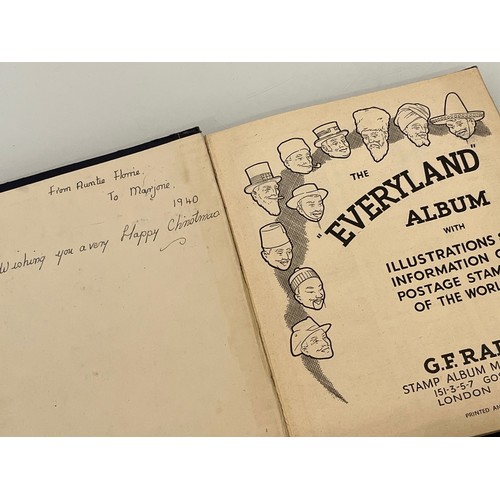 From Auntie Florrie.
To Marjorie.
1940
Wishing you a very Happy Christmas
THE
"EVERYLAND"
ALBUM
WITH
ILLUSTRATIONS
INFORMATION
POSTAGE STAM
OF THE WORL
G.F. RA
STAMP ALBUM M
151-3-5-7 GO
LONDON
PRINTED AN